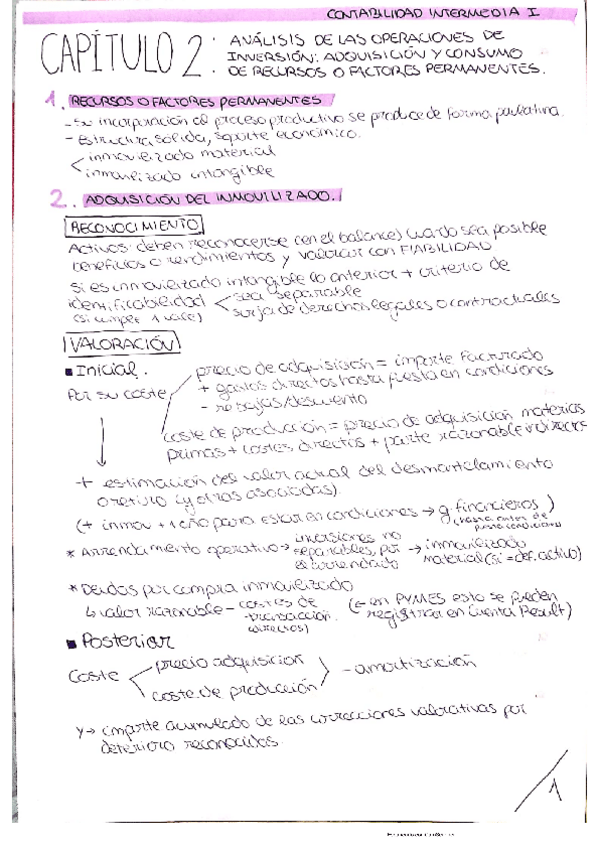 CONTABILIDAD INTERMEDIA I
CAPÍTULO 2: ANÁLISIS DE LAS OPERACIONES DE
INVERSIÓN: ADQUISICIÓN Y CONSUMO
DE RECURSOS O FACTORES PERMANENTES.
1. RECURSOS O FACTORES PERMANENTES
- su incorporación al proceso productivo se produce de forma paulatina.
- Estructura sólida, soporte económico.
inmovilizado material
inmovilizado intangible
2. ADQUISICIÓN DEL INMOVILIZADO.
RECONOCIMIENTO
Activos: deben reconocerse (en el balance) cuando sea posible
beneficios o rendimientos y valorar con FIABILIDAD
Si es inmovilizado intangible lo anterior + criterio de
identificabilidad < sea separable
(si cumple 1 vale) surja de derechos legales o contractuales
VALORACIÓN
▪ Inicial.
Por su coste
precio de adquisición = importe facturado
+ gastos directos hasta puesta en condiciones
- rebajas/descuento
coste de producción = precio de adquisición materias
primas + costes directos + parte razonable indirectos
+ estimación del valor actual del desmantelamiento
o retiro (y otras asociadas)
(+ inmov + 1 año para estar en condiciones → g. financieros)
(hasta antes de puesta condiciones)
* Arrendamiento operativo → inversiones no
separables, por
el arrendado → inmovilizado
material (si = def. activo)
* Deudas por compra inmovilizado
↳ valor razonable - costes de
transacción
(directos)
(← en PYMES esto se pueden
registrar en Cuenta Result)
▪ Posterior
Coste
precio adquisición
coste de producción
- amortización
y → importe acumulado de las correcciones valorativas por
deterioro reconocidas.
1